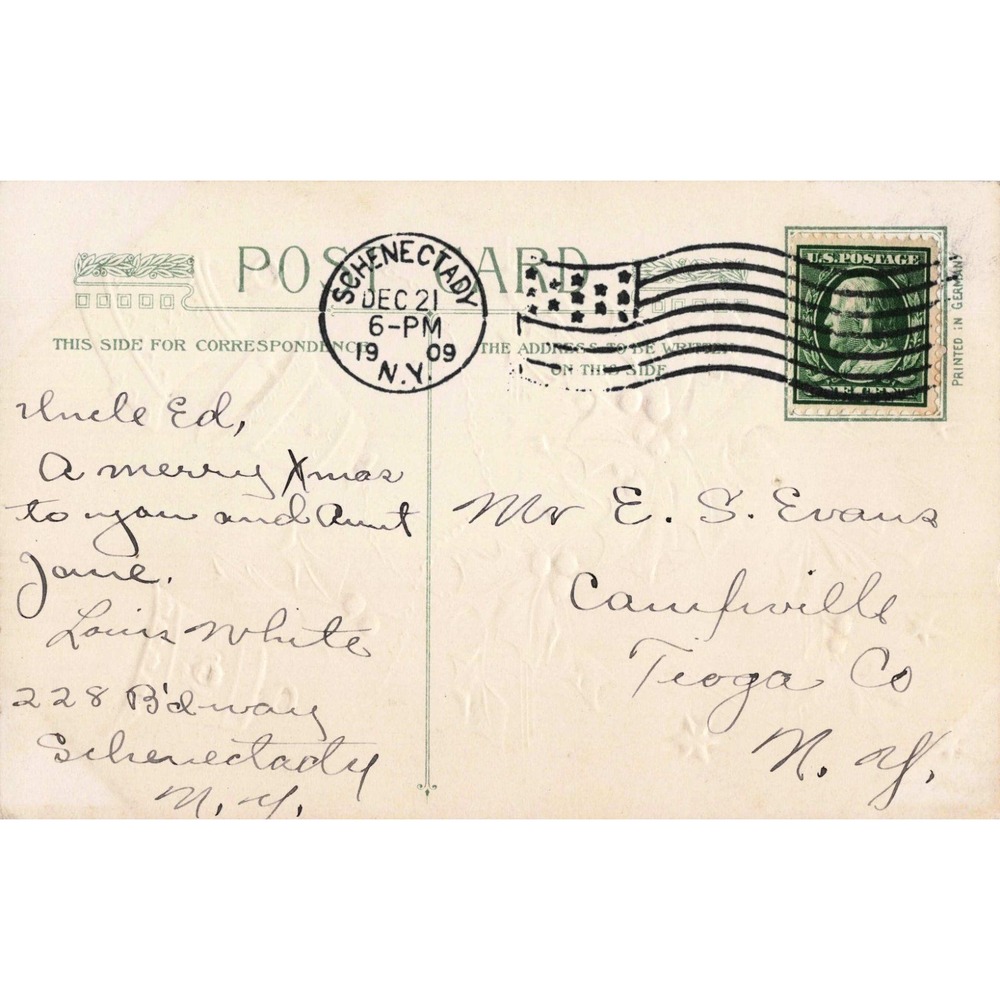 POST CARD
SCHENECTADY
DEC 21
6-PM
1909
N.Y.
U.S. POSTAGE
PRINTED IN GERMANY
THIS SIDE FOR CORRESPONDENCE
THE ADDRESS TO BE WRITTEN
ON THIS SIDE
Uncle Ed,
A merry Xmas
to you and Aunt
Jane.
Louis White
228 B'd-way
Schenectady
N. Y.
Mr E. S. Evans
Campville
Tioga Co
N. Y.